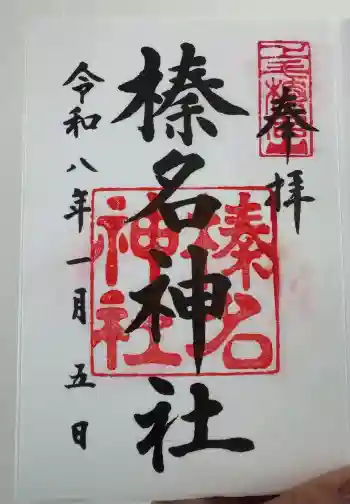 奉拝
榛名神社
令和八年一月五日
榛名
神社